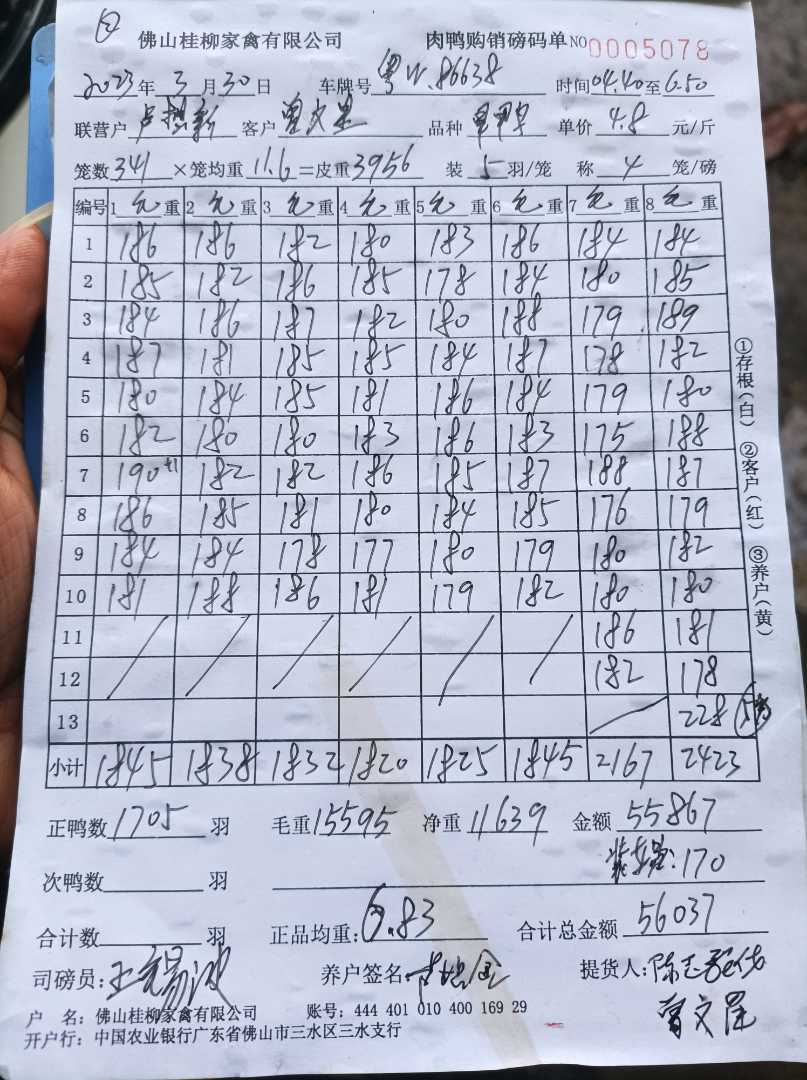 佛山桂柳家禽有限公司 肉鸭购销磅码单 NO 0005078
2023年3月30日 车牌号 粤W.86638 时间04.40至6.50
联营户 客户 曾文星 品种 单价 4.8 元/斤
笼数341 ×笼均重11.6=皮重3956 装 5 羽/笼 称 4 笼/磅
编号 1 毛 重 2 毛 重 3 毛 重 4 毛 重 5 毛 重 6 毛 重 7 毛 重 8 毛 重
1 186 186 182 180 183 186 184 184
2 185 182 186 185 178 184 180 185
3 184 186 187 182 180 188 179 189
4 187 181 185 185 184 187 178 182
5 180 184 185 181 186 184 179 180
6 182 180 180 183 186 183 175 188
7 190+1 182 182 186 185 187 188 187
8 186 185 181 180 184 185 176 179
9 184 184 178 177 180 179 180 182
10 181 188 186 181 179 182 180 180
11 186 181
12 182 178
13 228
小计 1845 1838 1832 1820 1825 1845 2167 2423
①存根(白) ②客户(红) ③养户(黄)
正鸭数 1705 羽 毛重 15595 净重 11639 金额 55867
170
次鸭数 羽
合计数 羽 正品均重: 6.83 合计总金额 56037
司磅员: 王锡波 养户签名: 提货人:
曾文星
户 名: 佛山桂柳家禽有限公司 账号: 444 401 010 400 169 29
开户行: 中国农业银行广东省佛山市三水区三水支行